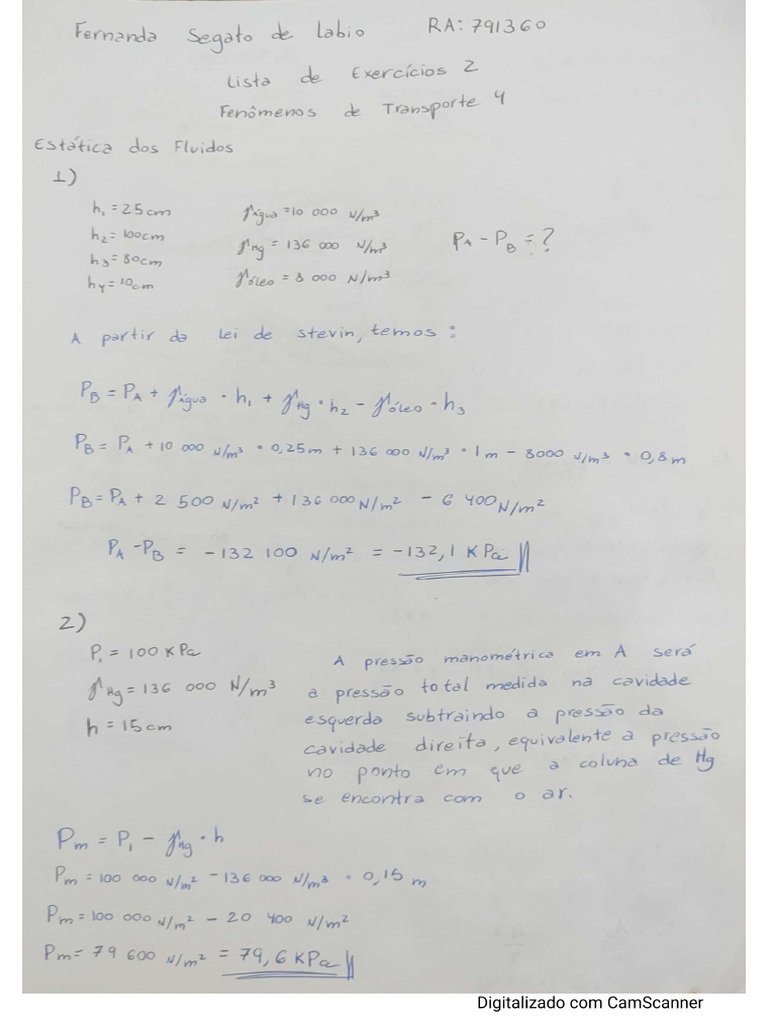 Fernanda Segato de Labio RA: 791360
Lista de Exercícios 2
Fenômenos de Transporte 4
Estática dos Fluidos
1)
h₁ = 25cm γÁgua = 10 000 N/m³
h₂ = 100cm γHg = 136 000 N/m³ PA - PB = ?
h₃ = 80cm γóleo = 8 000 N/m³
h4 = 10cm
A partir da lei de stevin, temos:
PB = PA + γÁgua · h₁ + γHg · h₂ - γóleo · h₃
PB = PA + 10 000 N/m³ · 0,25m + 136 000 N/m³ · 1m - 8000 N/m³ · 0,8m
PB = PA + 2 500 N/m² + 136 000 N/m² - 6 400 N/m²
PA - PB = -132 100 N/m² = -132,1 KPa
2)
P₁ = 100 KPa
γHg = 136 000 N/m³
h = 15cm
A pressão manométrica em A será
a pressão total medida na cavidade
esquerda subtraindo a pressão da
cavidade direita, equivalente a pressão
no ponto em que a coluna de Hg
se encontra com o ar.
Pm = P₁ - γHg · h
Pm = 100 000 N/m² - 136 000 N/m³ · 0,15 m
Pm = 100 000 N/m² - 20 400 N/m²
Pm = 79 600 N/m² = 79,6 KPa
Digitalizado com CamScanner